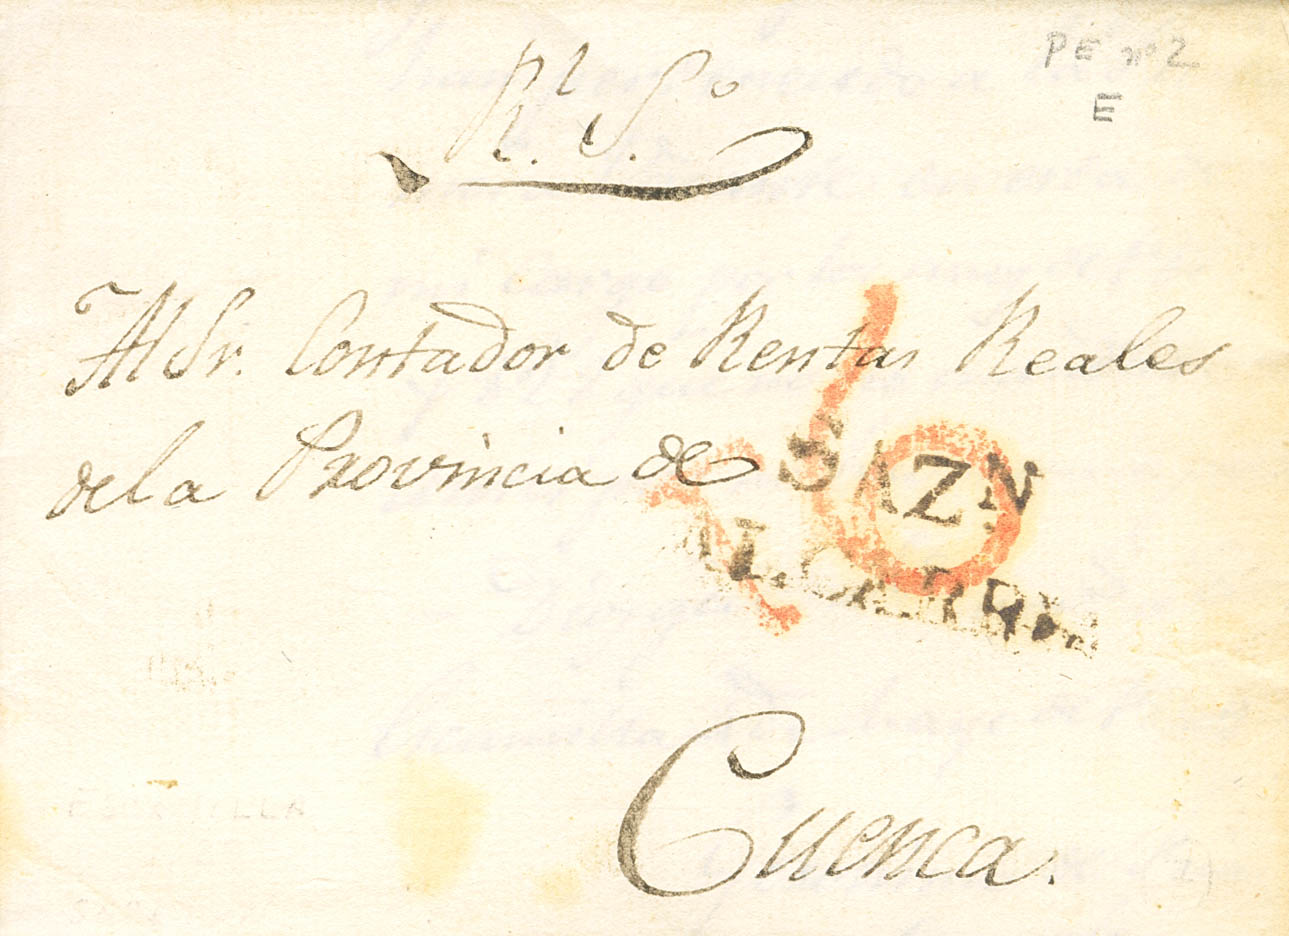 PE nº 2
E
Rl. S.º
Al Sr. Contador de Rentas Reales
de la Provincia de
SAZN
ALCARRIA
Cuenca.